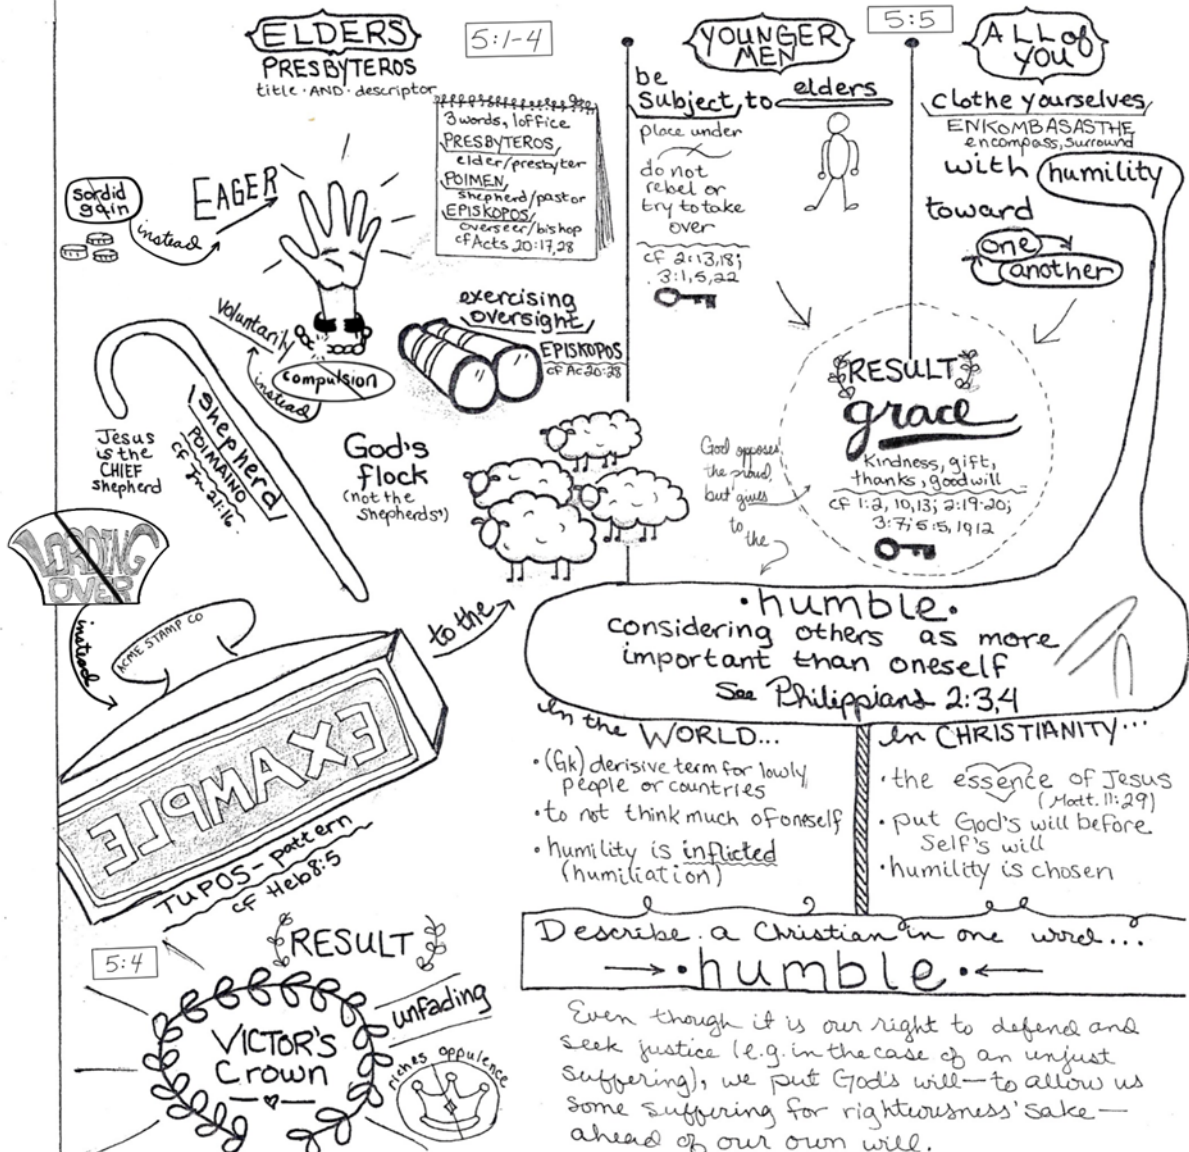 ELDERS
PRESBYTEROS
title · AND · descriptor
5:1-4
3 words, 1 office
PRESBYTEROS,
elder/presbyter
POIMEN,
shepherd/pastor
EPISKOPOS,
overseer/bishop
cf Acts 20:17,28
sordid
gain
instead
EAGER
voluntarily
instead
compulsion
exercising
oversight
EPISKOPOS
cf Ac 20:28
Jesus
is the
CHIEF
shepherd
shepherd
POIMAINO
cf Jn. 21:16
God's
flock
(not the
shepherds')
LORDING
OVER
instead
ACME STAMP CO
EXAMPLE
to the
TUPOS - pattern
cf Heb 8:5
5:4
RESULT
VICTOR'S
Crown
unfading
riches oppulence
YOUNGER
MEN
be
subject, to elders
place under
do not
rebel or
try to take
over
cf 2:13,18;
3:1,5,22
5:5
ALL of
YOU
clothe yourselves
ENKOMBASASTHE
encompass, surround
with humility
toward
one
another
RESULT
grace
kindness, gift,
thanks, goodwill
cf 1:2, 10,13; 2:19-20;
3:7; 5:5, 10,12
God opposes
the proud,
but gives
to
the
· humble ·
considering others as more
important than oneself
See Philippians 2:3,4
In the WORLD...
· (Gk) derisive term for lowly
people or countries
· to not think much of oneself
· humility is inflicted
(humiliation)
In CHRISTIANITY...
· the essence of Jesus
(Matt. 11:29)
· put God's will before
Self's will
· humility is chosen
Describe a Christian in one word...
· humble ·
Even though it is our right to defend and
seek justice (e.g. in the case of an unjust
suffering), we put God's will — to allow us
some suffering for righteousness' sake —
ahead of our own will.